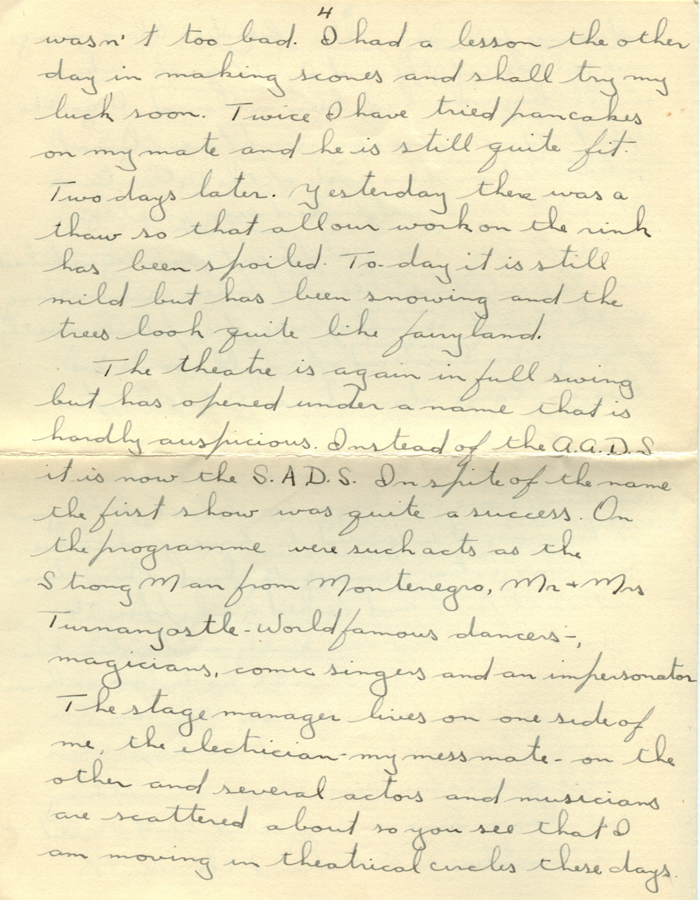 4
wasn't too bad. I had a lesson the other
day in making scones and shall try my
luck soon. Twice I have tried pancakes
on my mate and he is still quite fit.
Two days later. Yesterday there was a
thaw so that all our work on the rink
has been spoiled. To-day it is still
mild but has been snowing and the
trees look quite like fairyland.
The theatre is again in full swing
but has opened under a name that is
hardly auspicious. Instead of the A.A.D.S
it is now the S.A.D.S. In spite of the name
the first show was quite a success. On
the programme were such acts as the
Strong Man from Montenegro, Mr + Mrs
Turnanjostle - World famous dancers -,
magicians, comic singers and an impersonator
The stage manager lives on one side of
me, the electrician - my messmate - on the
other and several actors and musicians
are scattered about so you see that I
am moving in theatrical circles these days.